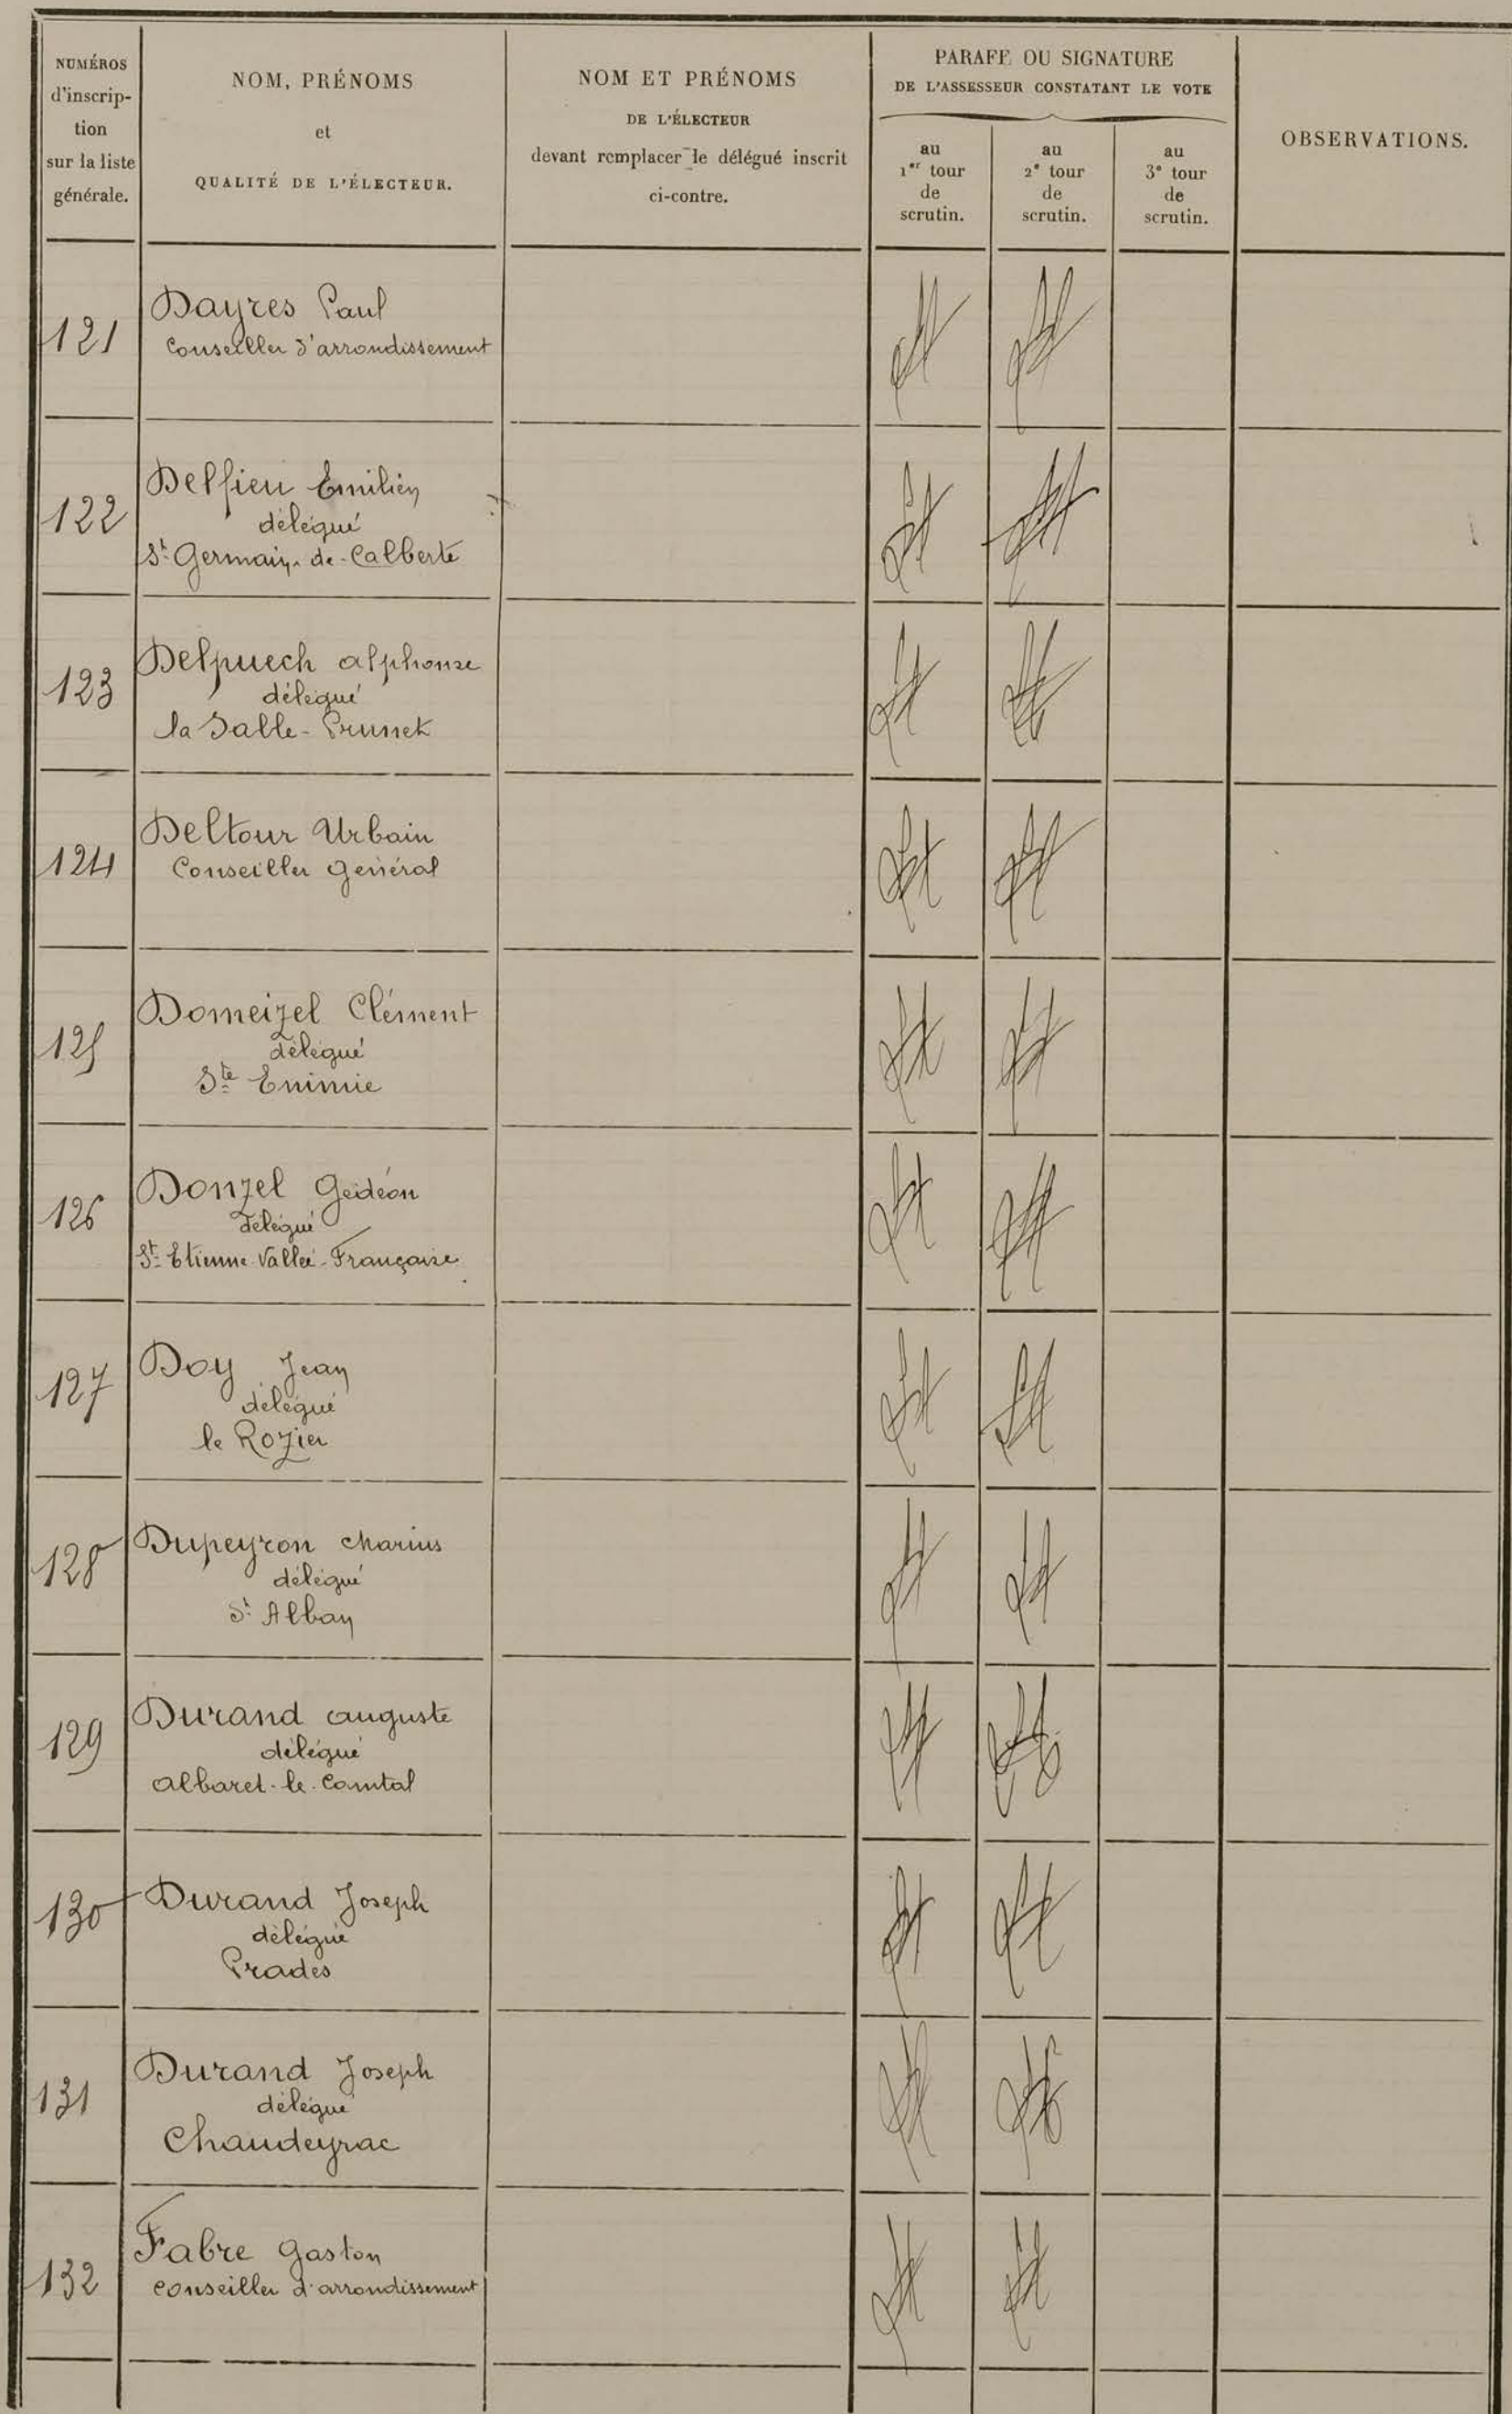 NUMÉROS
d'inscrip-
tion
sur la liste
générale.
NOM, PRÉNOMS
et
QUALITÉ DE L'ÉLECTEUR.
NOM ET PRÉNOMS
DE L'ÉLECTEUR
devant remplacer le délégué inscrit
ci-contre.
PARAFE OU SIGNATURE
DE L'ASSESSEUR CONSTATANT LE VOTE
au
1er tour
de
scrutin.
au
2e tour
de
scrutin.
au
3e tour
de
scrutin.
OBSERVATIONS.
121
Dayres Paul
Conseiller d'arrondissement
122
Delfieu Emilien
délégué
St Germain-de-Calberte
123
Delpuech Alphonse
délégué
la Salle-Prunet
124
Deltour Urbain
Conseiller général
125
Domeizel Clément
délégué
Ste Enimie
126
Donzel Gédéon
délégué
St Etienne-Vallée-Française
127
Doy Jean
délégué
le Rozier
128
Dupeyron Marius
délégué
St Alban
129
Durand Auguste
délégué
Albaret-le-Comtal
130
Durand Joseph
délégué
Prades
131
Durand Joseph
délégué
Chaudeyrac
132
Fabre Gaston
Conseiller d'arrondissement